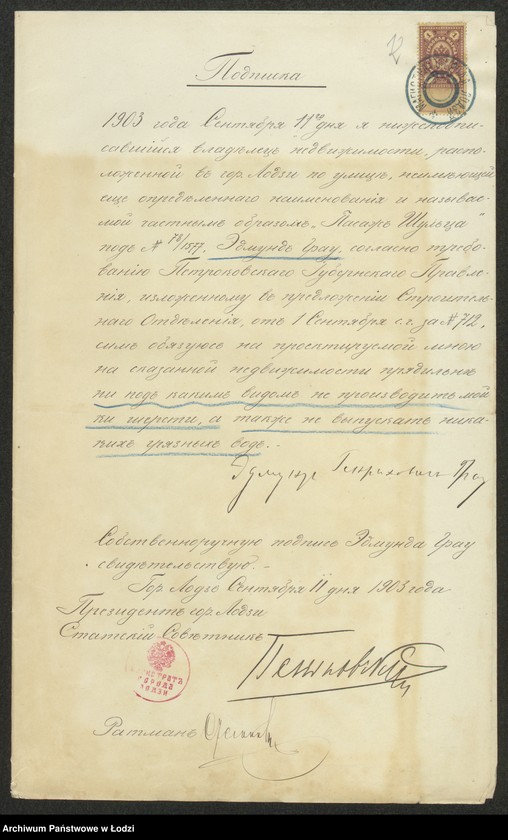 Подписка
1903 года Сентября 11го дня я нижеподпи-
савшійся владѣлецъ недвижимости, распо-
ложенной въ гор. Лодзи по улицѣ, неимѣющей
еще опредѣленнаго наименованія и называе-
мой частнымъ образомъ „Пасажъ Шульца"
подъ № 78/1577. Эдмундъ Грау, согласно требо-
ванію Петроковскаго Губернскаго Правле-
нія, изложенному въ предложеніи Строитель-
наго Отдѣленія, отъ 1 Сентября с.г. за № 712,
симъ обязуюсь на проектируемой мною
на сказанной недвижимости прядильнѣ
ни подъ какимъ видомъ не производить мой-
ки шерсти, а также не выпускать ника-
кихъ грязныхъ водъ.-
Эдмундъ Генриховичъ Грау
Собственноручную подпись Эдмунда Грау
свидѣтельствую.-
Гор. Лодзь Сентября 11 дня 1903 года
Президентъ гор. Лодзи
Статскій Совѣтникъ
Пеньковскій
МАГИСТРАТЪ
ГОРОДА
ЛОДЗИ
Ратманъ
Archiwum Państwowe w Łodzi